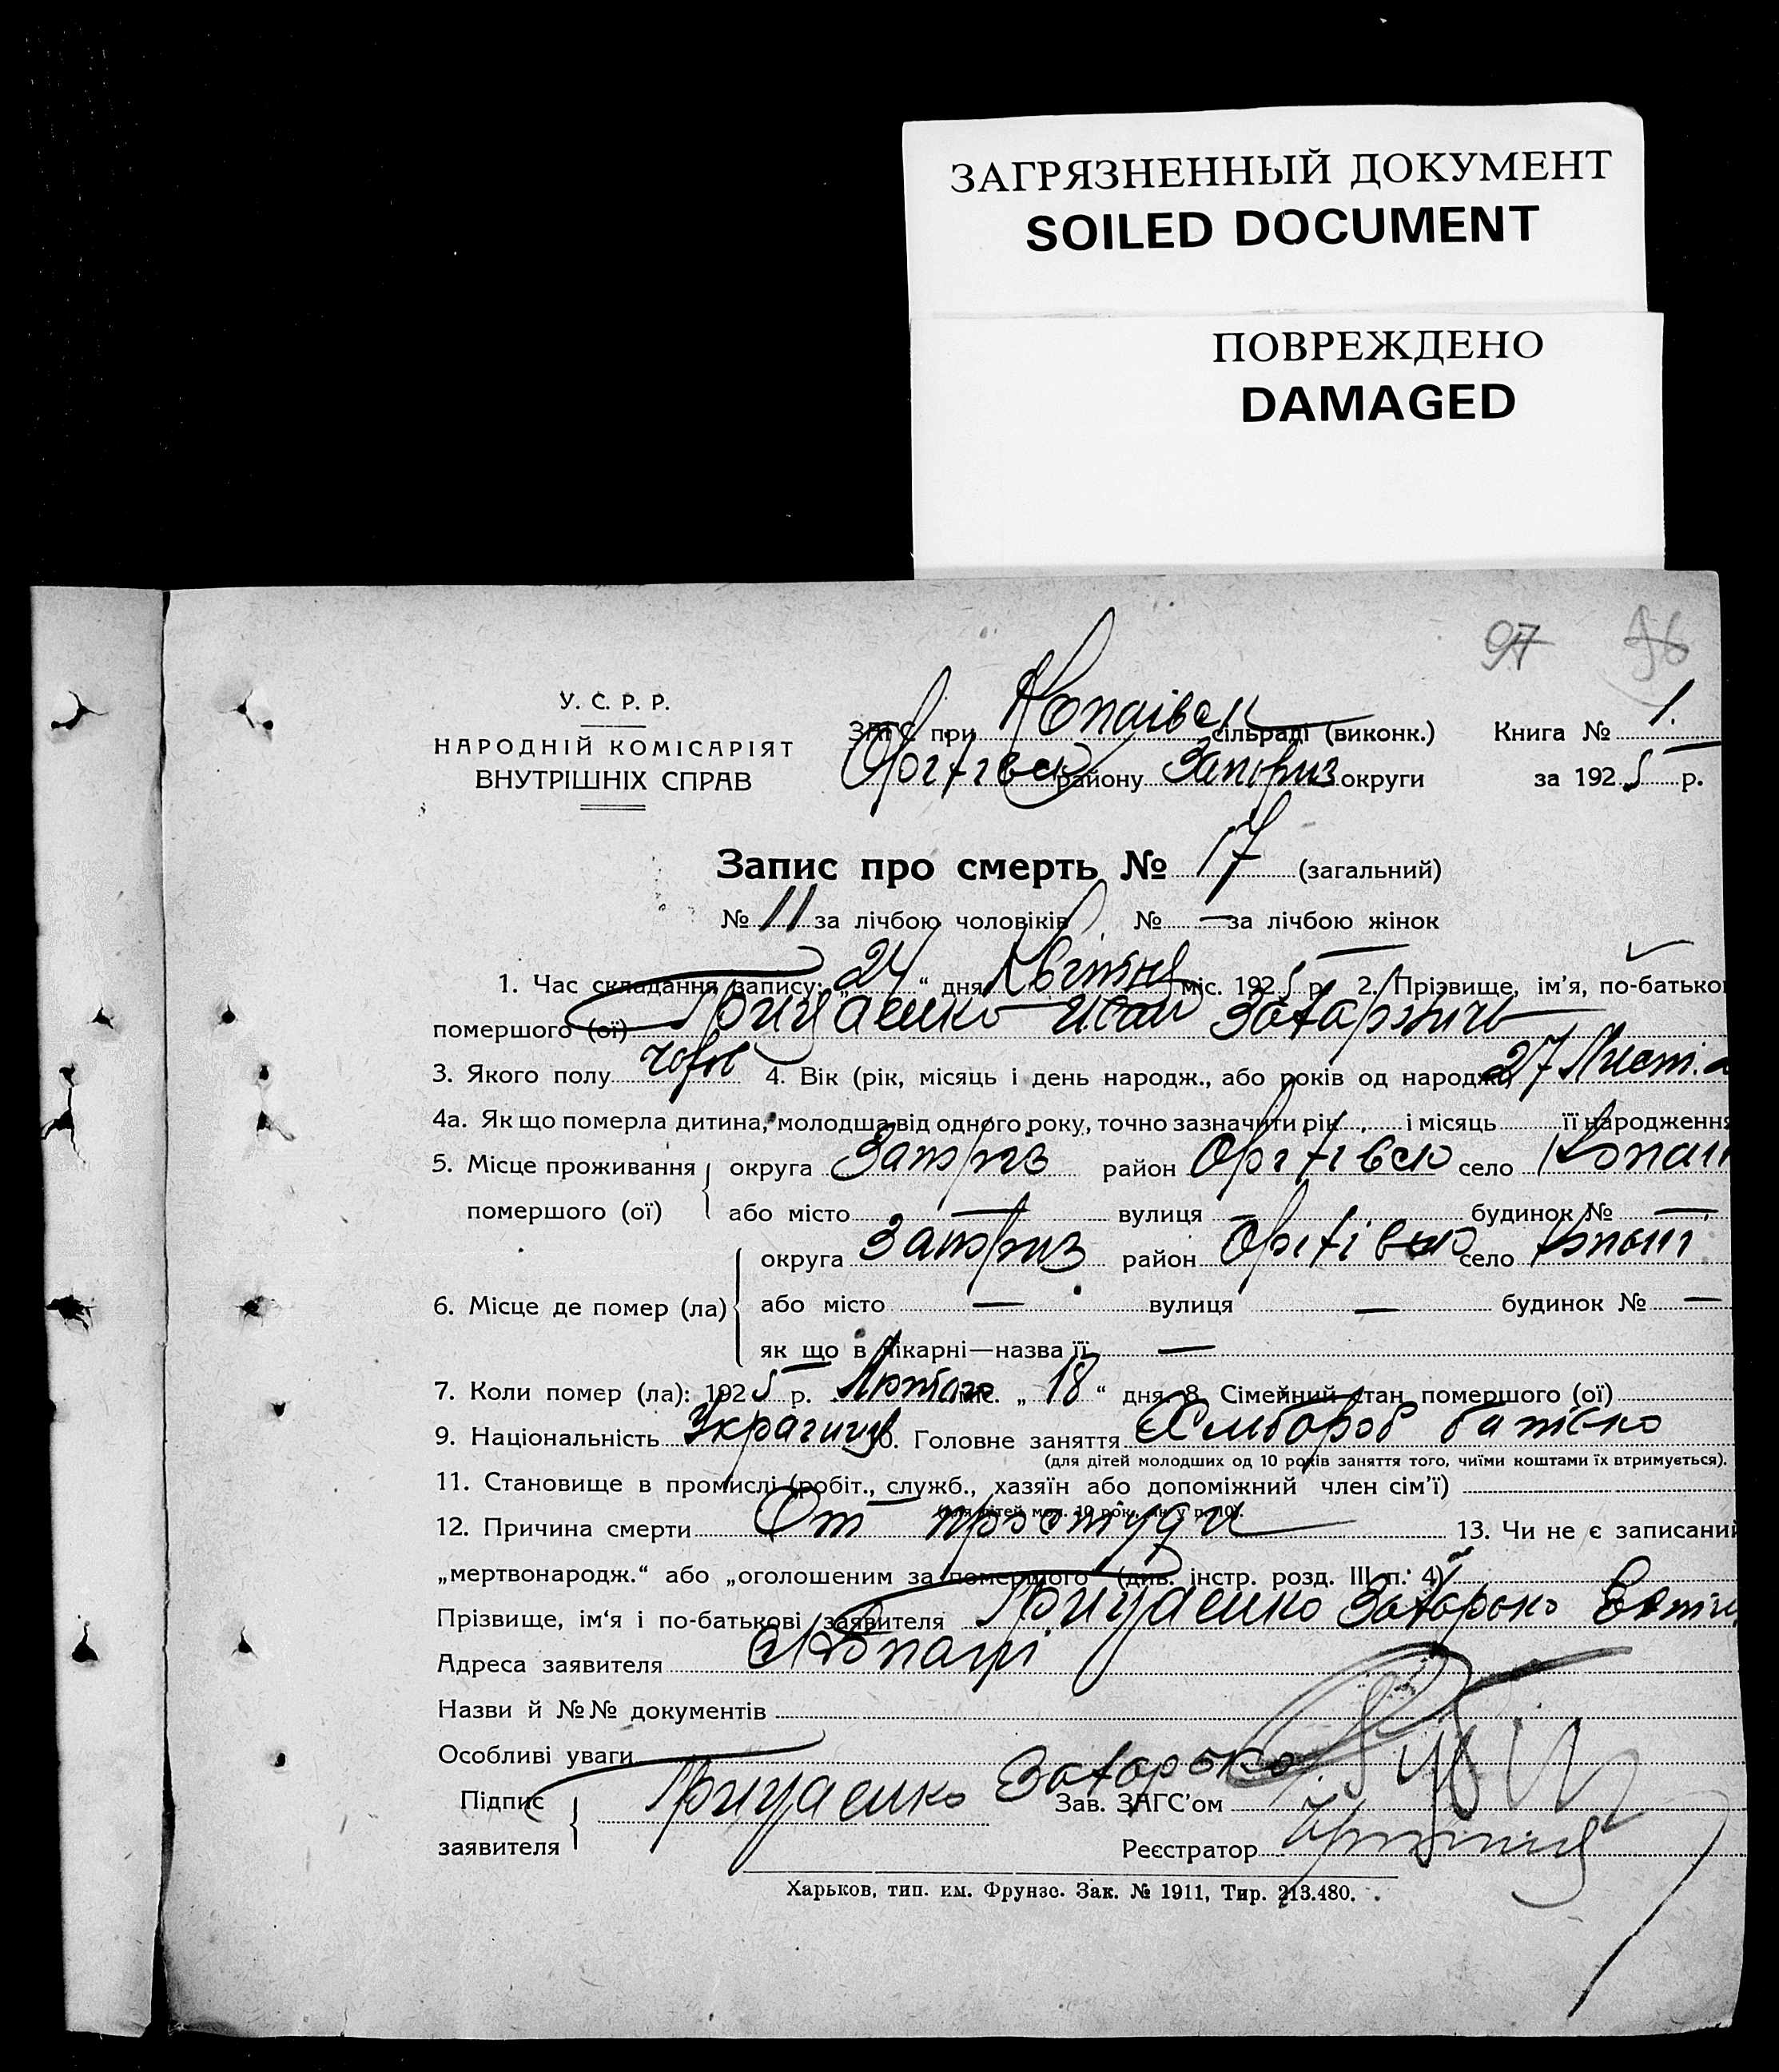 ЗАГРЯЗНЕННЫЙ ДОКУМЕНТ
SOILED DOCUMENT
ПОВРЕЖДЕНО
DAMAGED
97 96
У. С. Р. Р.
НАРОДНІЙ КОМІСАРІЯТ
ВНУТРІШНІХ СПРАВ
ЗАГС при Копаівск сільраді (виконк.)
Оріхівск району Запориз округи
Книга № 1.
за 1925 р.
Запис про смерть № 17 (загальний)
№ 11 за лічбою чоловіків, № — за лічбою жінок
1. Час складання запису: „24“ дня Квітня міс. 1925 р. 2. Прізвище, ім'я, по-батько
помершого (ої) Грицаенко Иван Захарович
3. Якого полу 4. Вік (рік, місяць і день народж., або років од народж.) 27 Лист.
4а. Як що померла дитина, молодша від одного року, точно зазначити рік і місяць її народження
5. Місце проживання помершого (ої) округа Запоріз район Оріхівск село Копані
або місто — вулиця — будинок № —
6. Місце де помер (ла) округа Запориз район Оріхівск село Копані
або місто — вулиця — будинок № —
як що в лікарні—назва її —
7. Коли помер (ла): 1925 р. Лютого міс. „18“ дня 8. Сімейний стан помершого (ої)
9. Національність Украгинц 10. Головне заняття Хлібороб батько
(для дітей молодших од 10 років заняття того, чиїми коштами їх втримується).
11. Становище в промислі (робіт., служб., хазяїн або допоміжний член сім'ї)
(для дітей мол. 10 рок., як у п. 10).
12. Причина смерти От простуди 13. Чи не є записаний
„мертвонародж.“ або „оголошеним за помершого“ (див. інстр. розд. III п. 4)
Прізвище, ім'я і по-батькові заявителя Грицаенко Захарко
Адреса заявителя с Копані
Назви й №№ документів
Особливі уваги
Підпис заявителя Грицаенко Захарько Зав. ЗАГС'ом
Реєстратор
Харьков, тип. им. Фрунзе. Зак. № 1911, Тир. 213.480.